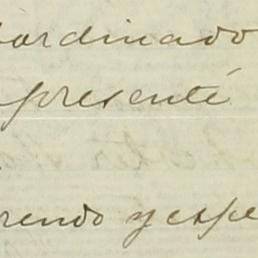 bordinado
presenté
rendo y espe